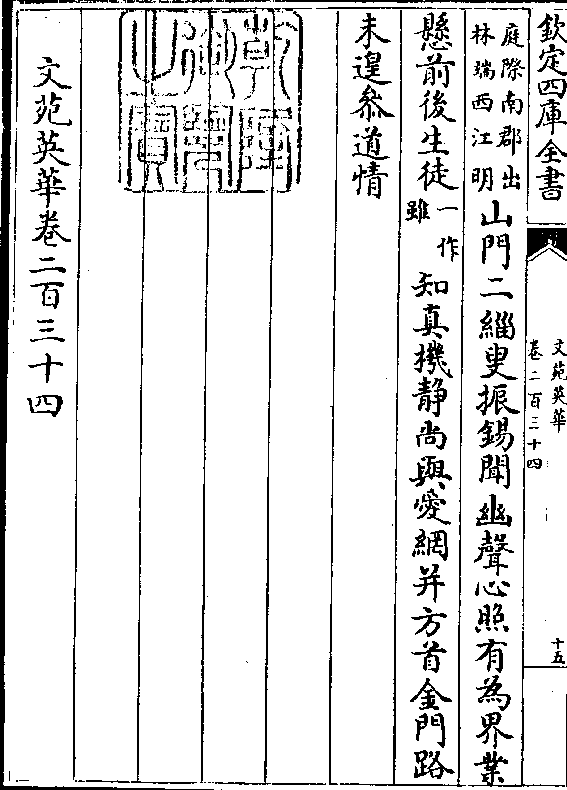 欽定四庫全書
文苑英華
卷二百三十四
十五
庭際南郡出
林瑞西江明
山門二緇叟振錫聞幽聲心照有為界業
懸前後生徒
一作
雖
知真機靜尚與愛網并方首金門路
未遑叅道情
乾隆御覽之寶
文苑英華卷二百三十四